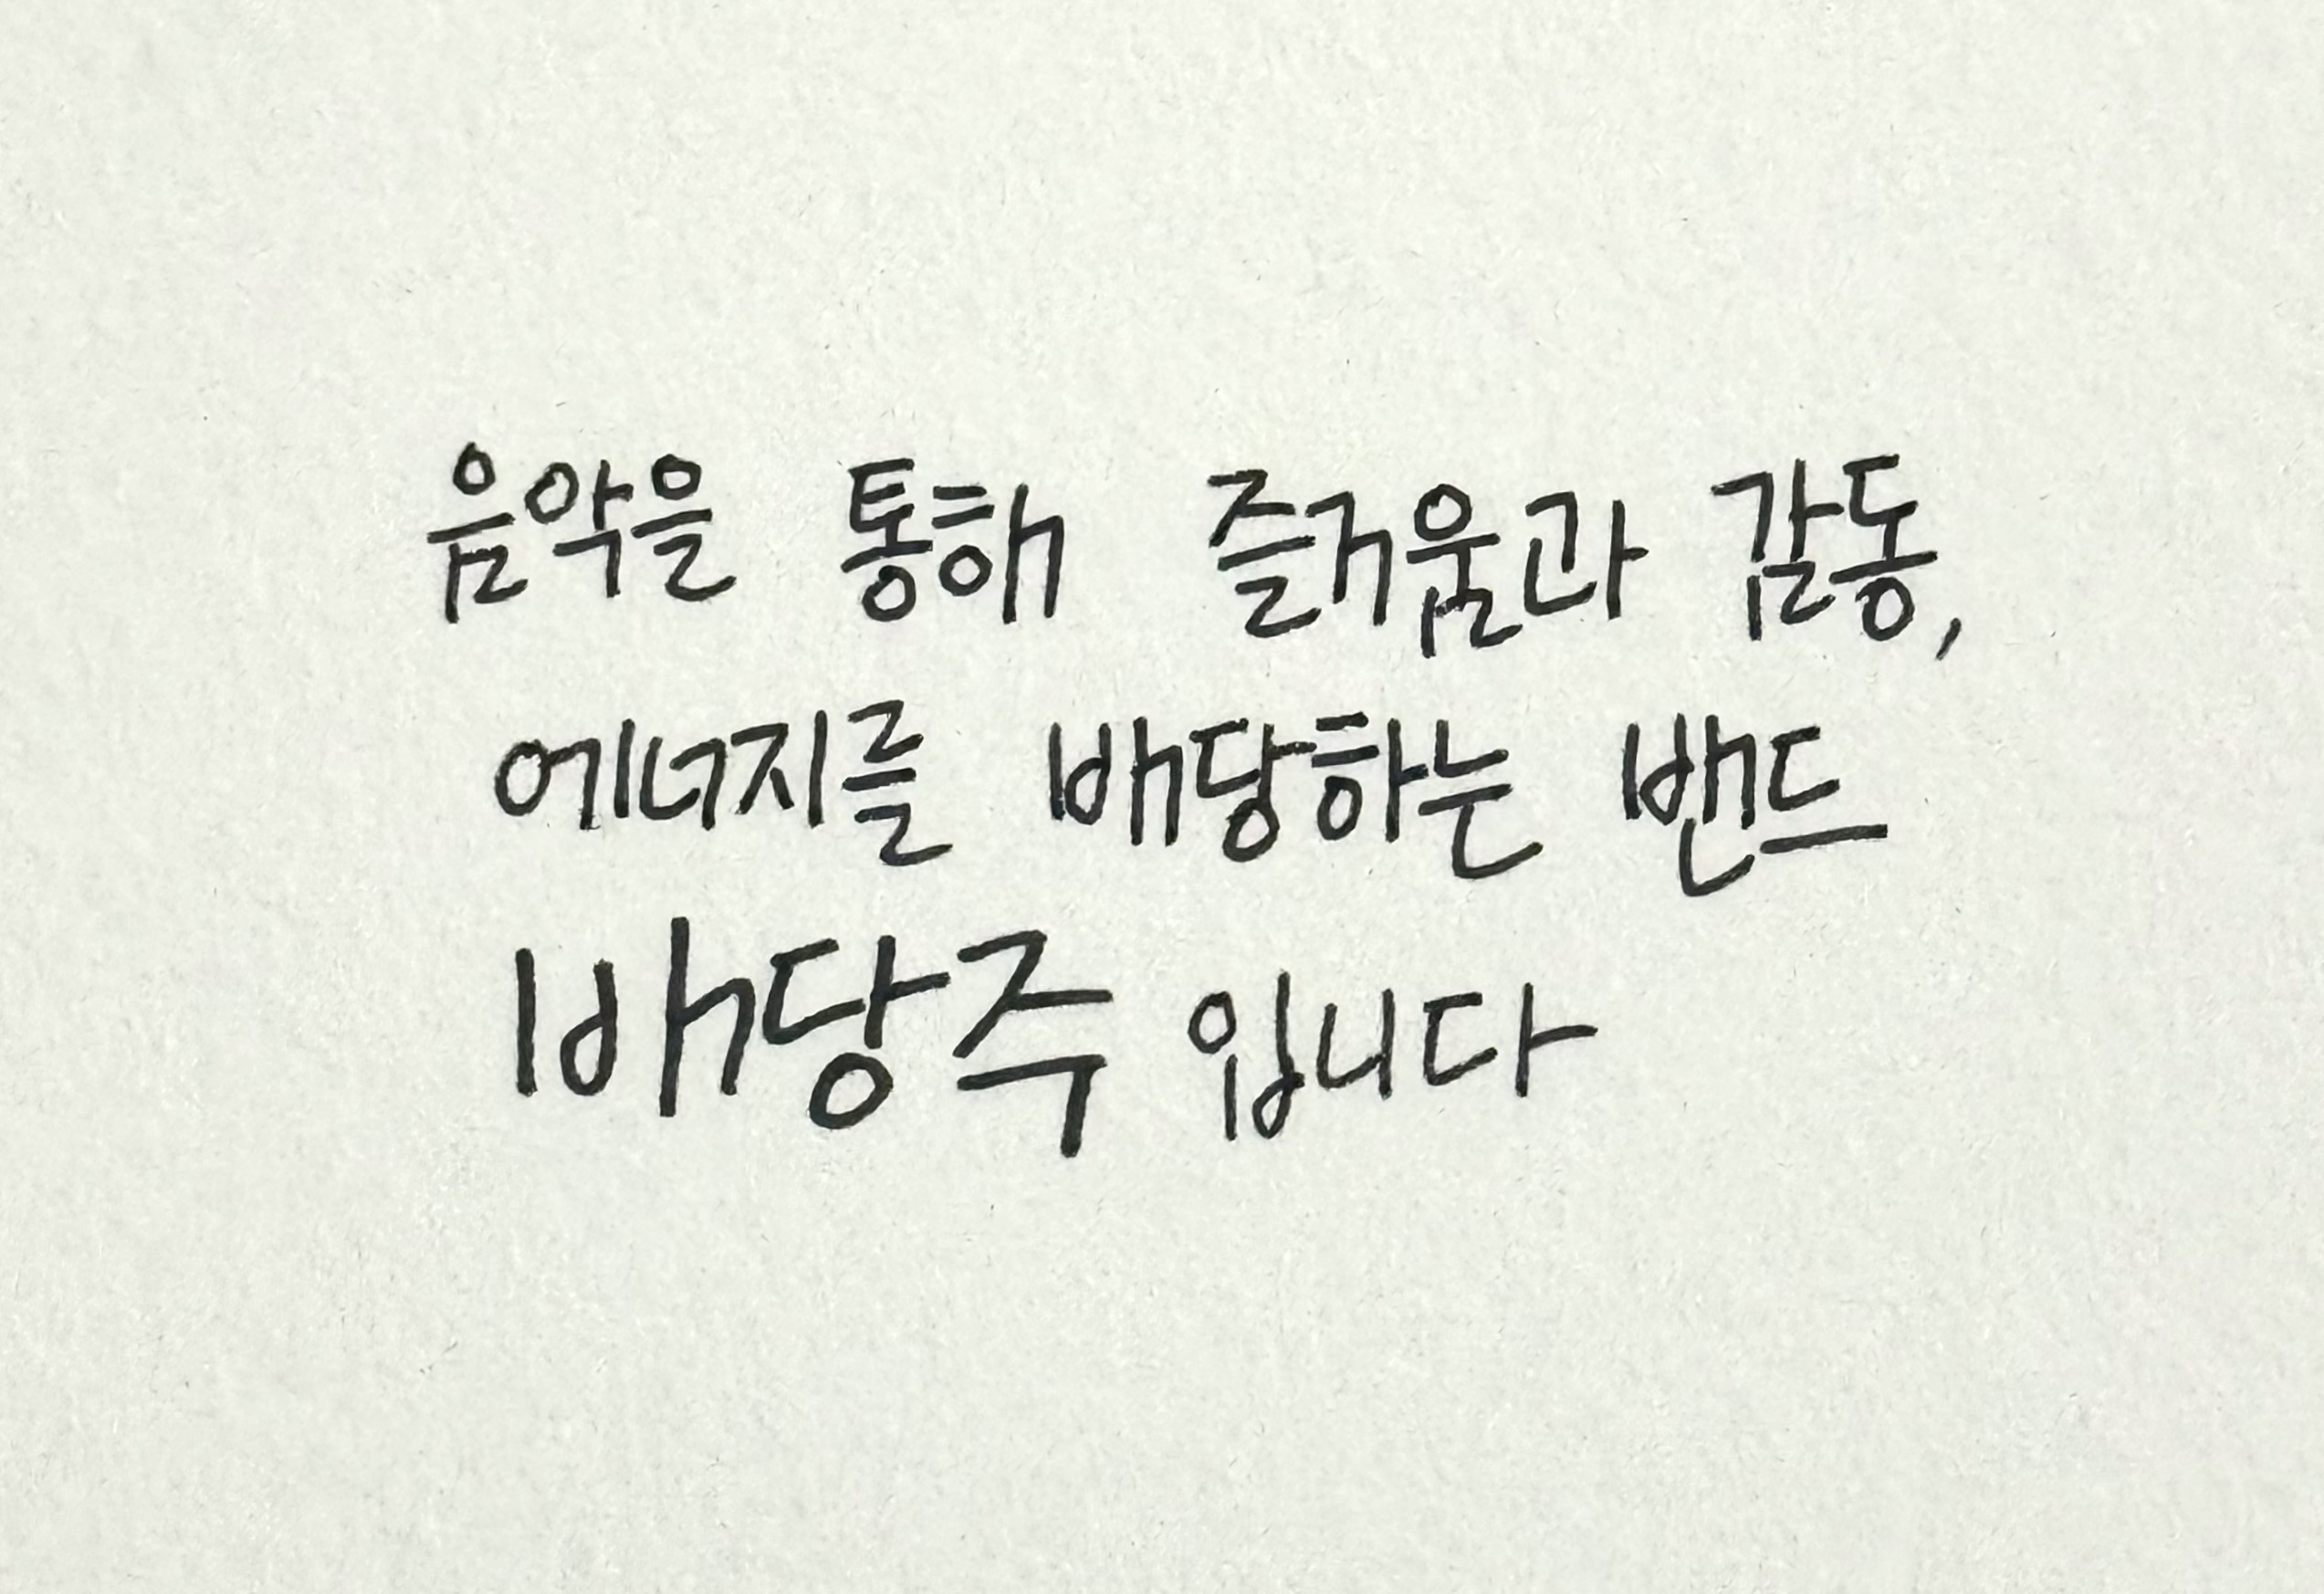 음악을 통해 즐거움과 감동,
에너지를 배당하는 밴드
배당주 입니다